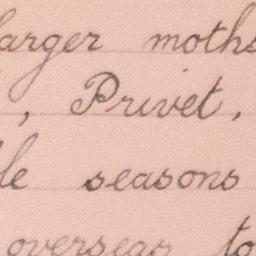 larger moths
, Privet,
le seasons
overseas to